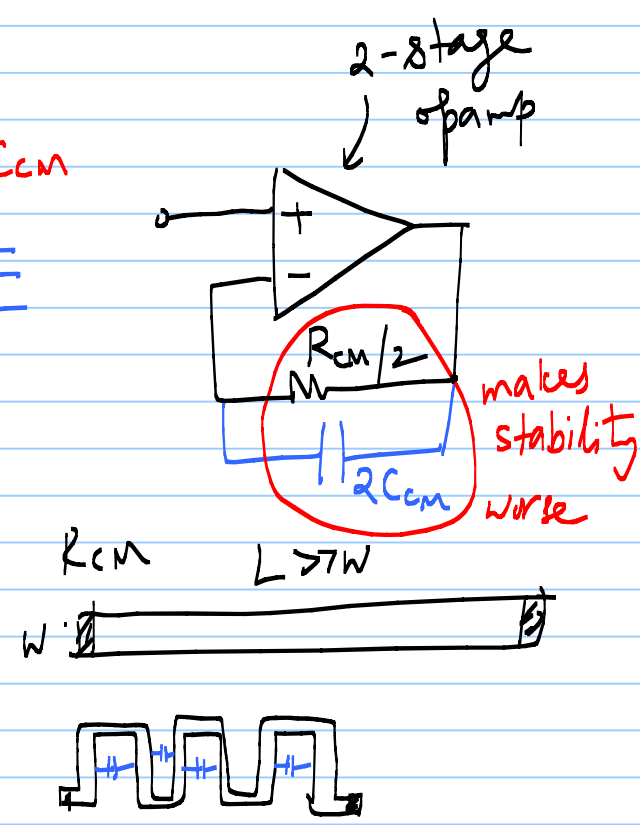 2-stage
opamp
CCM
+
-
RCM/2
makes
stability
2CCM
worse
RCM
L>>W
W